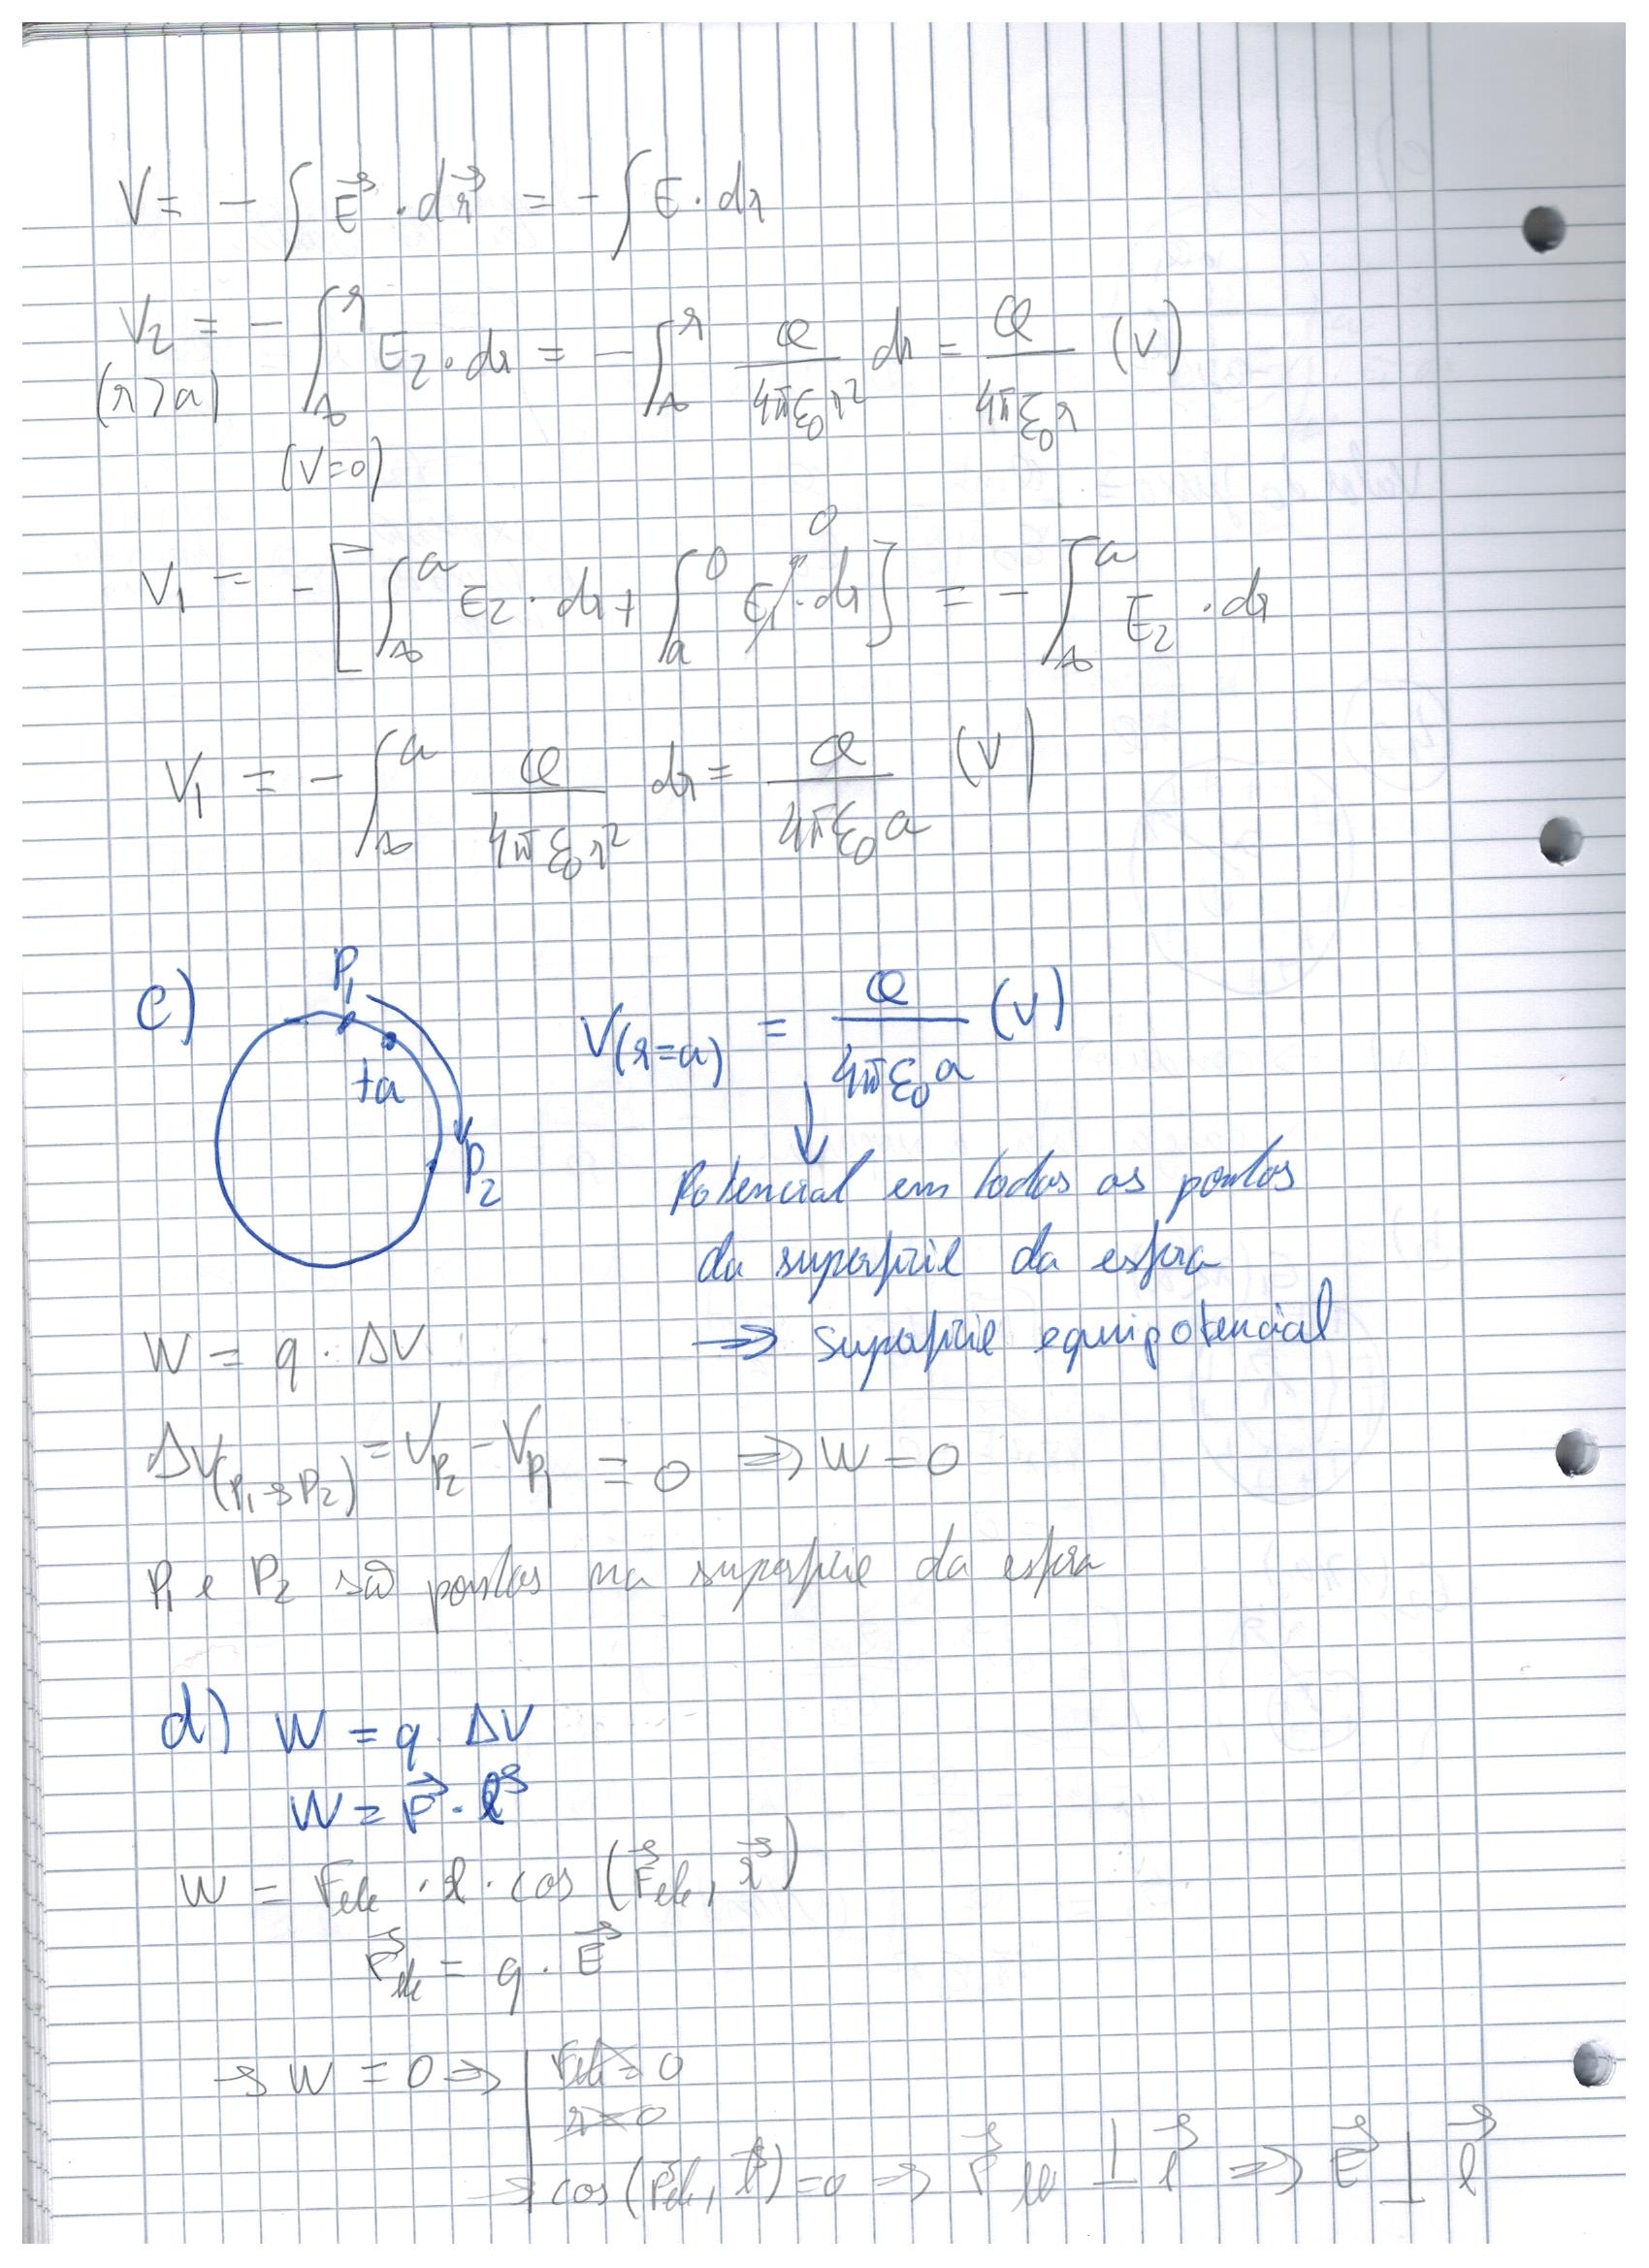 V = - ∫ E⃗ · dr⃗ = - ∫ E · dr
V₂ = - ∫_∞^r E₂ · dr = - ∫_∞^r Q/(4πε₀r²) dr = Q/(4πε₀r) (V)
(r>a)
(V=0)
V₁ = - [∫_∞^a E₂ · dr + ∫_a^0 E₁ · dr] = - ∫_∞^a E₂ · dr
0
V₁ = - ∫_∞^a Q/(4πε₀r²) dr = Q/(4πε₀a) (V)
c) P₁ V(r=a) = Q/(4πε₀a) (V)
+a
P₂
Potencial em todos os pontos
da superfície da esfera
⇒ superfície equipotencial
W = q · ΔV
ΔV(P₁→P₂) = V_P₂ - V_P₁ = 0 ⇒ W = 0
P₁ e P₂ são pontos na superfície da esfera
d) W = q · ΔV
W = F⃗ · l⃗
W = Fele · l · cos (F⃗ele, l⃗)
F⃗ele = q · E⃗
→ W = 0 ⇒ | Fele = 0
r = 0
→ cos (F⃗ele, l⃗) = 0 ⇒ F⃗ele ⊥ l⃗ ⇒ E⃗ ⊥ l⃗